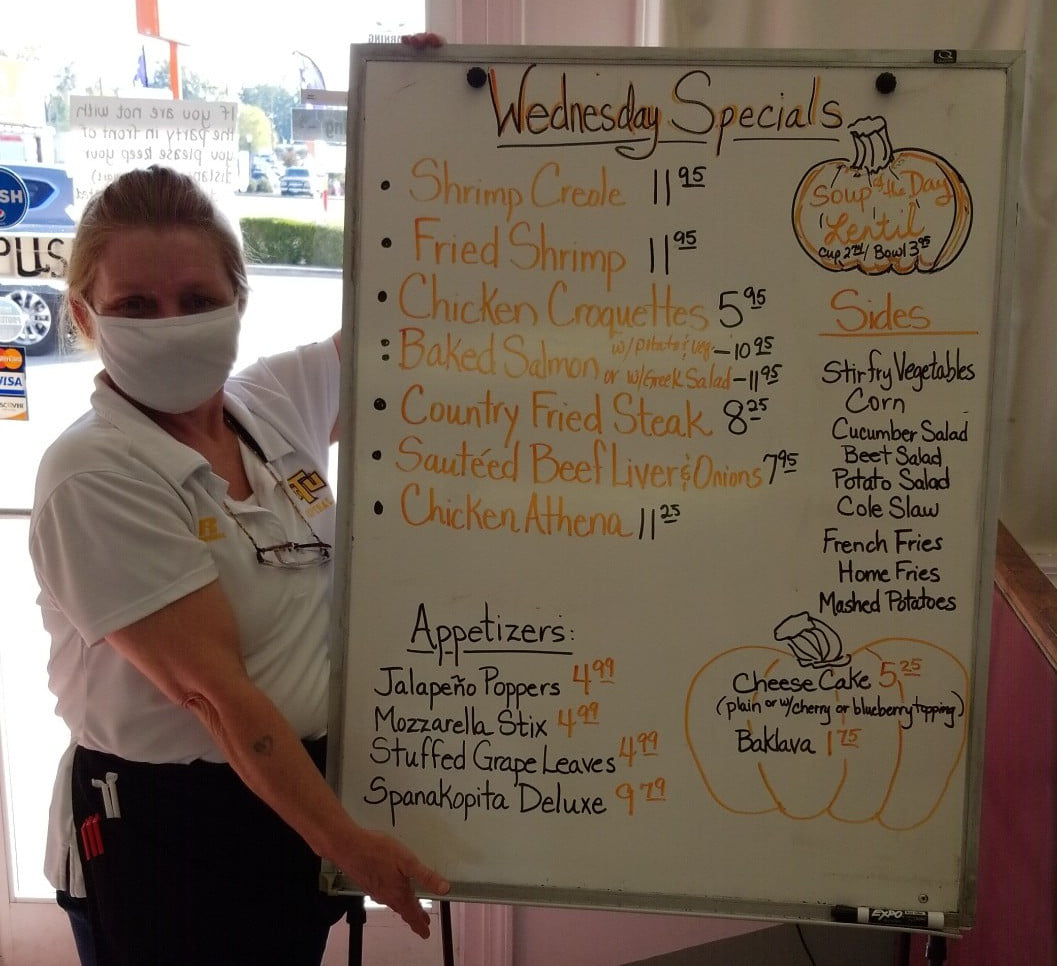 Wednesday Specials
• Shrimp Creole 11 95
• Fried Shrimp 11 95
• Chicken Croquettes 5 95
• Baked Salmon w/potato & veg - 10 95
or w/Greek Salad - 11 95
• Country Fried Steak 8 25
• Sautéed Beef Liver & Onions 7 95
• Chicken Athena 11 25
Appetizers:
Jalapeño Poppers 4 99
Mozzarella Stix 4 99
Stuffed Grape Leaves 4 99
Spanakopita Deluxe 9 79
Soup of the Day
"Lentil"
Cup / Bowl 3 95
Sides
Stirfry Vegetables
Corn
Cucumber Salad
Beet Salad
Potato Salad
Cole Slaw
French Fries
Home Fries
Mashed Potatoes
Cheese Cake 5 25
(plain or w/cherry or blueberry topping)
Baklava 1 75
EXPO
If you are not with
the party in front of
you please keep your
VISA